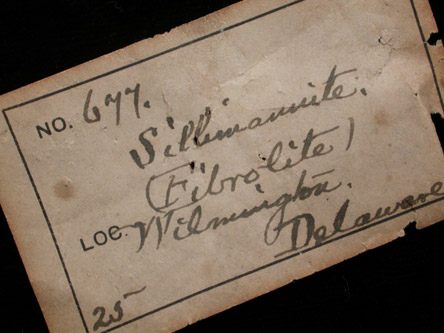 NO. 677.
Sillimannite.
(Fibrolite)
LOC. Wilmington.
Delaware
25